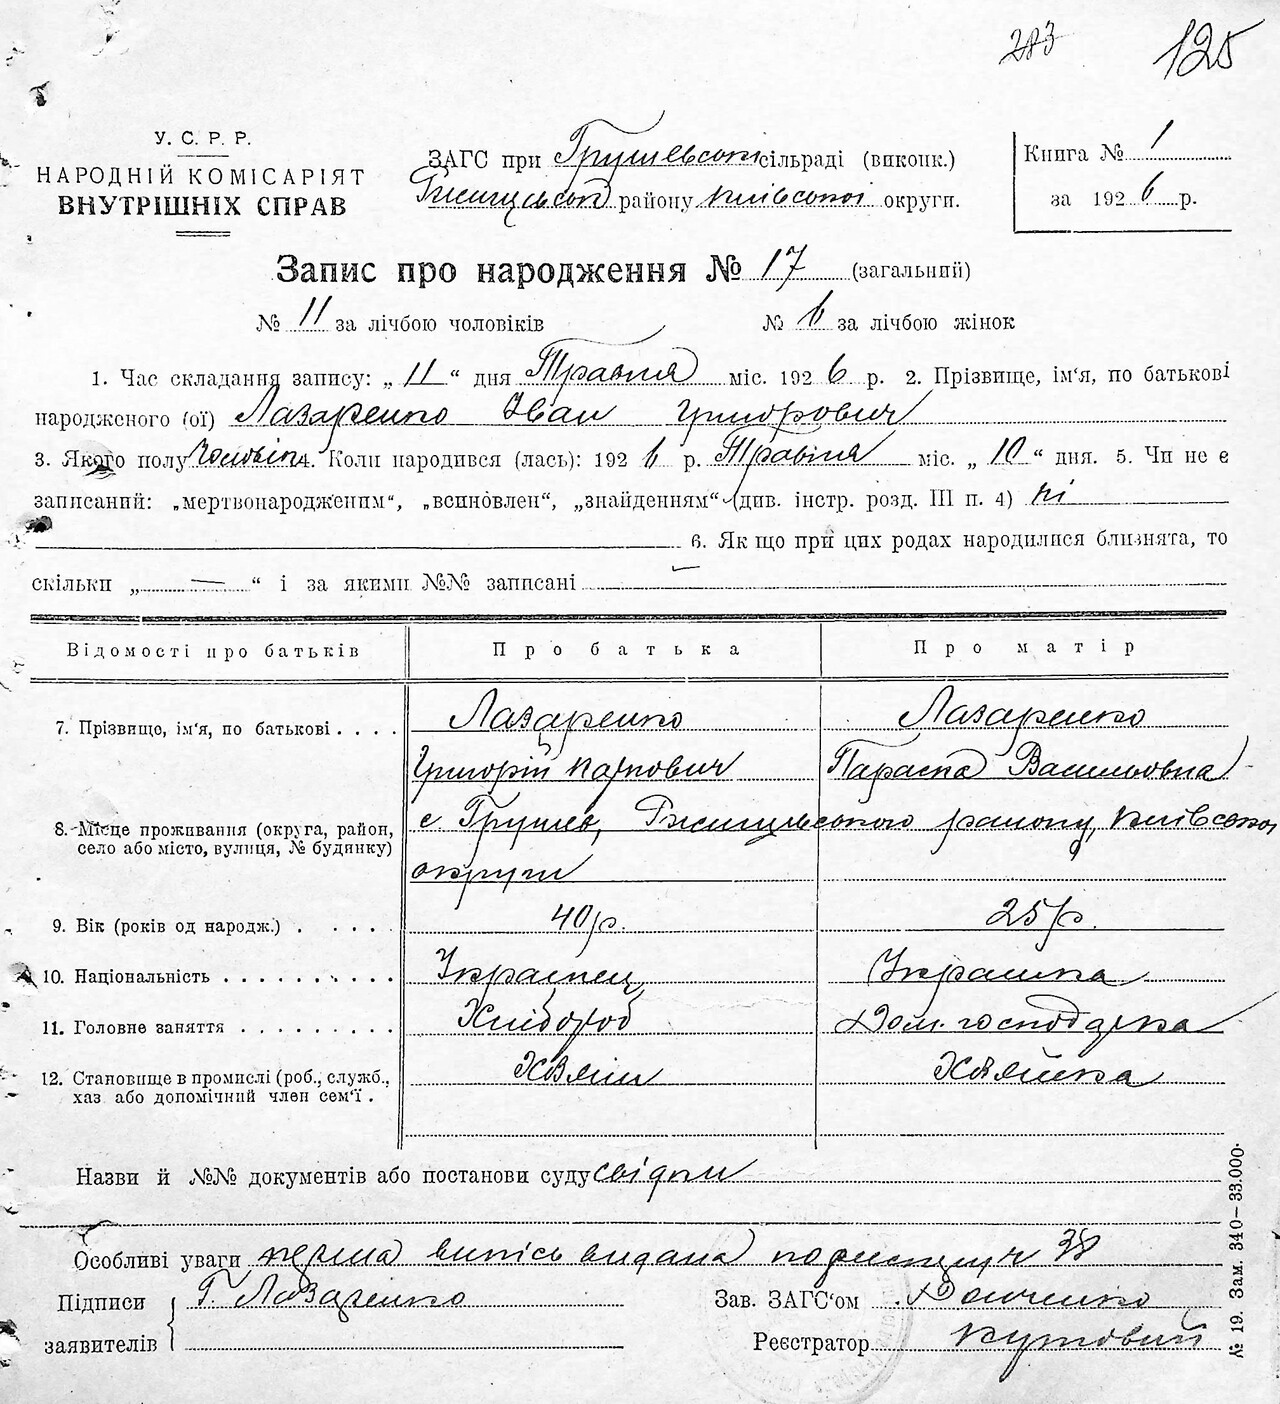 283 125
У. С. Р. Р.
НАРОДНІЙ КОМІСАРІЯТ
ВНУТРІШНІХ СПРАВ
ЗАГС при Грушевській сільраді (виконк.)
Ржищівськ району Київської округи.
Книга № 1
за 1926 р.
Запис про народження № 17 (загальний)
№ 11 за лічбою чоловіків № 6 за лічбою жінок
1. Час складання запису: „ 11 “ дня Травня міс. 1926 р. 2. Прізвище, ім'я, по батькові
народженого (ої) Лазаренко Іван Григорович
3. Якого полу Чоловік 4. Коли народився (лась): 1926 р. Травня міс. „ 10 “ дня. 5. Чи не є
записаний: „мертвонародженим“, „всиновлен“, „знайденням“ (див. інстр. розд. III п. 4) ні
6. Як що при цих родах народилися близнята, то
скільки „ — “ і за якими №№ записані —
Відомості про батьків Про батька Про матір
7. Прізвище, ім'я, по батькові . . . . Лазаренко Лазаренко
Григорій Карпович Параска Васильовна
8. Місце проживання (округа, район, село або місто, вулиця, № будинку) с. Грушев, Ржищівського району, Київської
округи
9. Вік (років од народж.) . . . . . 40 р. 25 р.
10. Національність . . . . . . . . . . Українец Украинка
11. Головне заняття . . . . . . . . . Хлібороб Дом. господарка
12. Становище в промислі (роб., служб., Хазяїн Хазяйка
хаз або допомічний член сем'ї .
Назви й №№ документів або постанови суду свідки
Особливі уваги перша випись видана 38
Підписи Г. Лазаренко Зав. ЗАГС'ом Данченко
заявителів Реєстратор Кутовий
№ 19. Зам. 340—33.000.